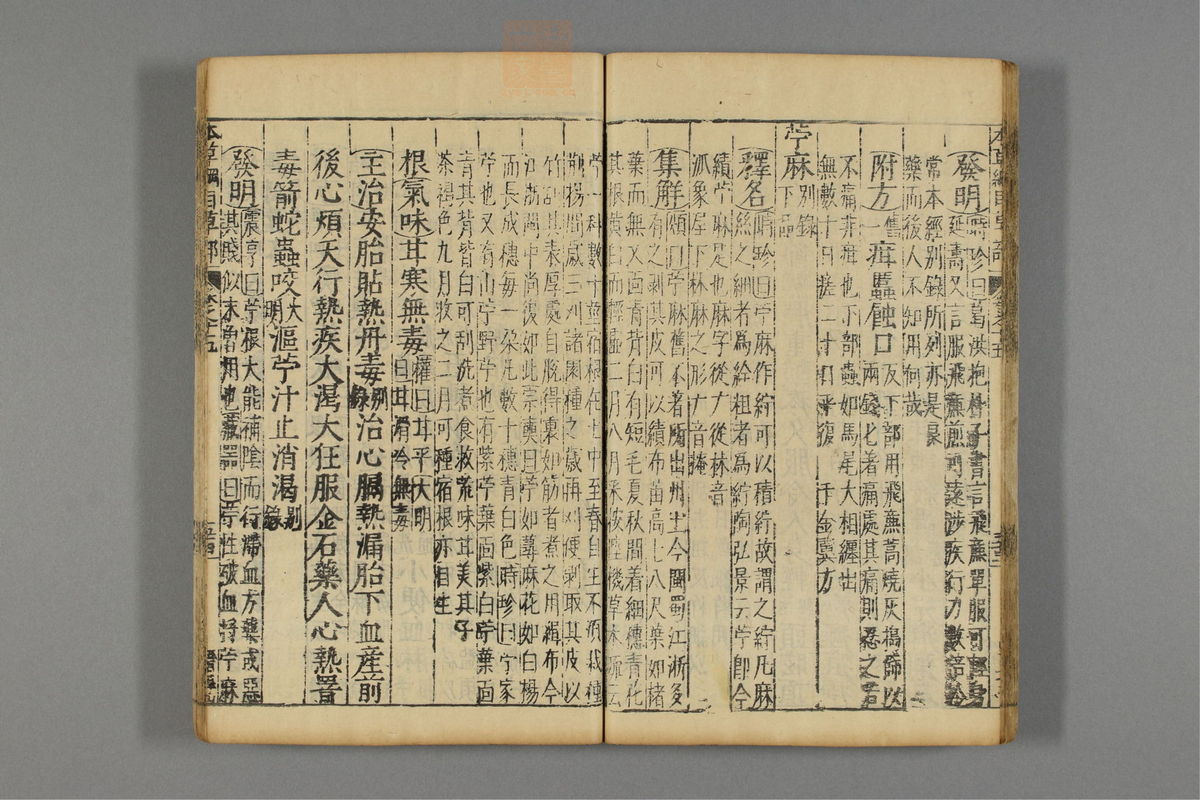 發明時珍曰葛洪抱朴子書言飛廉單服可輕身
延壽又言服飛廉煎可遠涉疾行力數倍於
常本經別錄所列亦是良
藥而後人不知用何哉
附方舊一疳䘌蝕口及下部用飛廉蒿燒灰搗篩以
兩錢匕著痛處甚痛則忍之若
不痛非疳也下部蟲如馬尾大相纏出
無數十日瘥二十日平復 千金翼方
苧麻別錄下品
釋名時珍曰苧麻作紵可以績紵故謂之紵凡麻
絲之細者為絟粗者為紵陶弘景云苧即今
績苧麻是也麻字從广從𣏟音
派象屋下𣏟麻之形广音掩
集解頌曰苧麻舊不著所出州土今閩蜀江浙多
有之剥其皮可以績布苗高七八尺葉如楮
葉而無叉面青背白有短毛夏秋間着細穗青花
其根黄白而輕虛二月八月采
苧一科數十莖宿根在土中至春自生不須栽種
荆揚間歲三刈諸園種之歲再刈便剥取其皮以
竹刮其表厚處自脫得裏如筋者煮之用緝布今
江浙閩中尚復如此宗奭曰苧如蕁麻花如白楊
而長成穗每一朵凡數十穗青白色時珍曰苧家
苧也又有山苧野苧也有紫苧葉面紫白苧葉面
青其背皆白可刮洗煮食救荒味甘美其子
茶褐色九月收之二月可種宿根亦自生
根氣味甘寒無毒權曰甘平大明
曰甘滑冷無毒
主治安胎貼熱丹毒別錄治心膈熱漏胎下血産前
後心煩天行熱疾大渴大狂服金石藥人心熱署
毒箭蛇蟲咬大明漚苧汁止消渴別錄
發明震亨曰苧根大能補陰而行滯血方藥或惡
其賤似未曾用也藏器曰苧性破血將苧麻